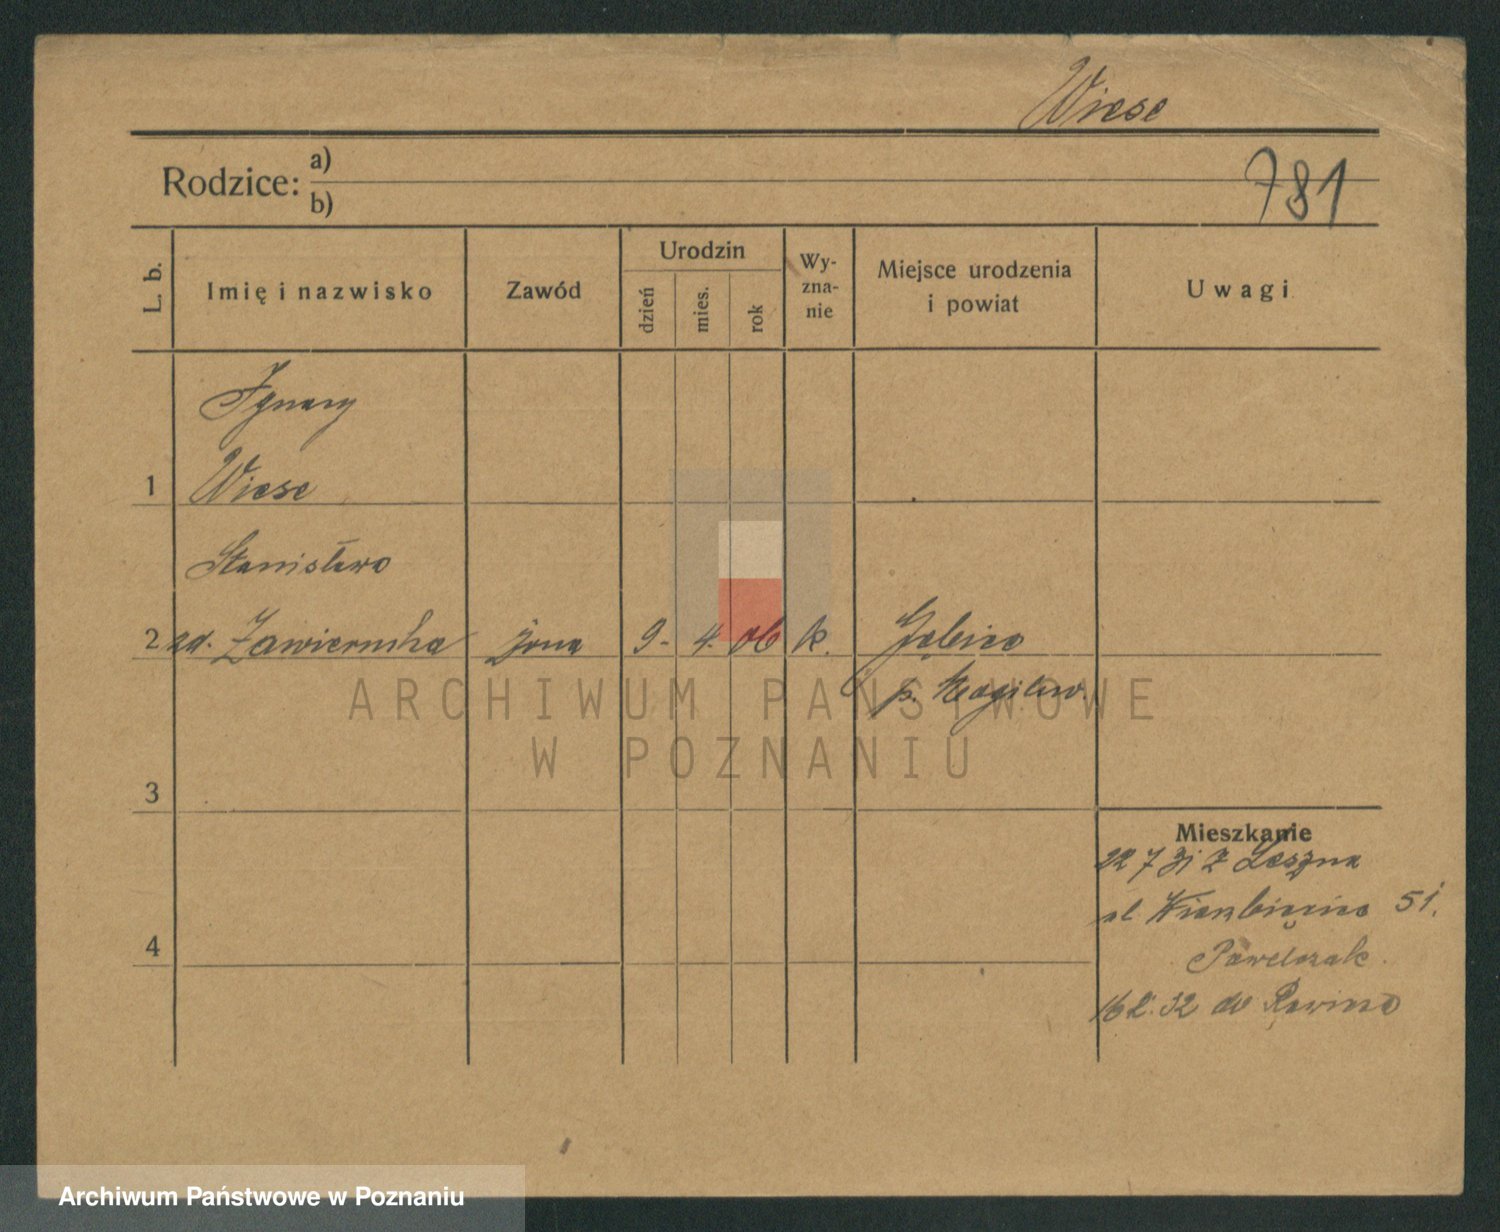 Wiese
Rodzice: a)
b)
781
L. b.
Imię i nazwisko
Zawód
Urodzin
dzień
mies.
rok
Wy-
zna-
nie
Miejsce urodzenia
i powiat
Uwagi
Ignacy
1 Wiese
Stanisława
2 zd. Zawierucha żona 9. 4. 06 k. Gębice
p. Mogilno.
ARCHIWUM PAŃSTWOWE
W POZNANIU
3
Mieszkanie
22 7 31 z Leszna
ul Wierzbięcice 51.
4
Pawelczak.
16 2. 32 do Rawicza
Archiwum Państwowe w Poznaniu